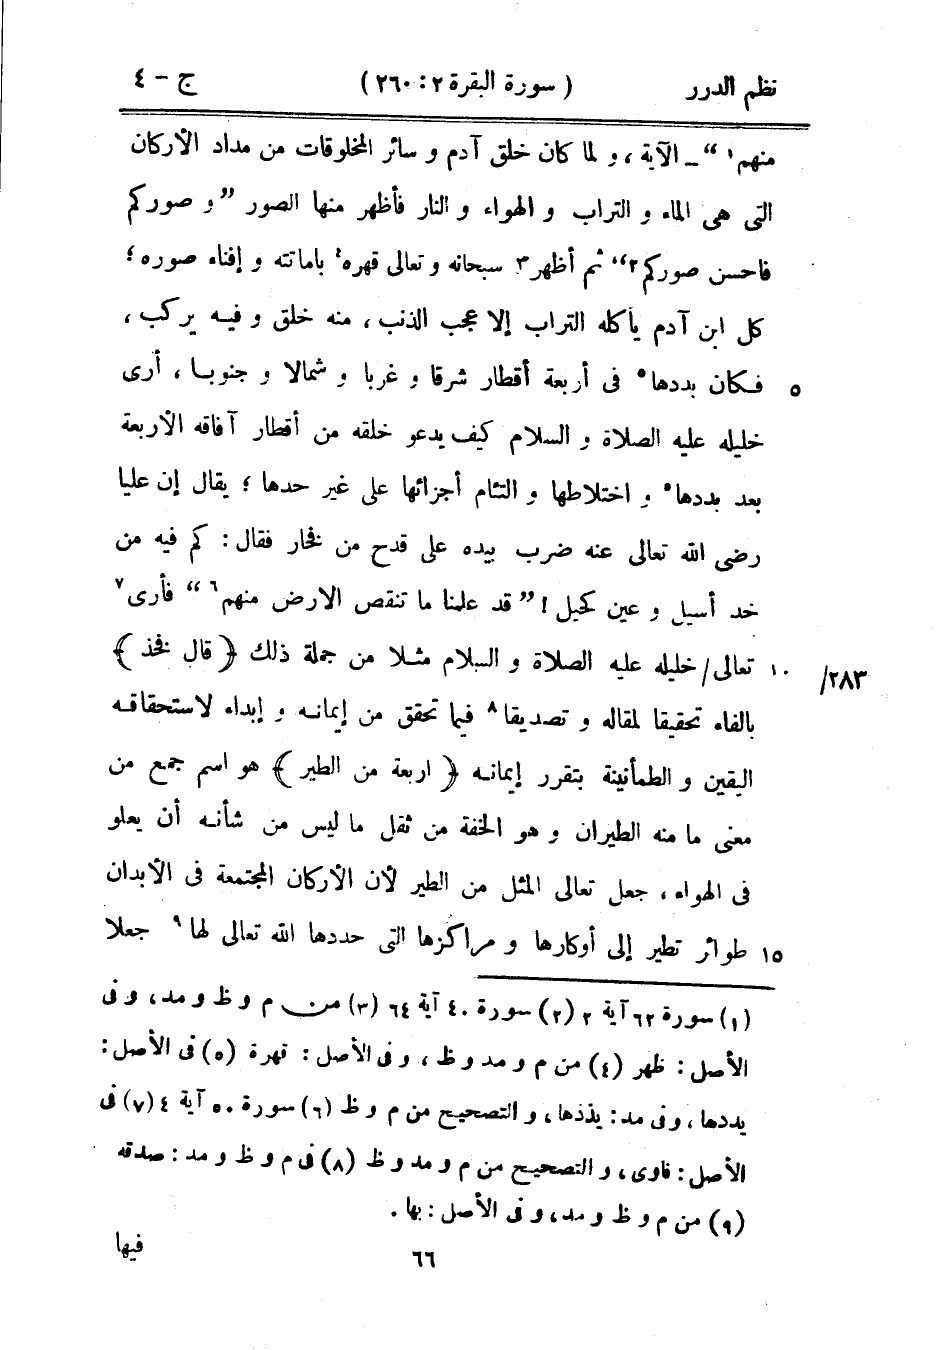 نظم الدرر ( سورة البقرة ٢ : ٢٦٠ ) ج - ٤
منهم١ “ ــ الآية ، و لما كان خلق آدم و سائر المخلوقات من مداد الأركان
التى هى الماء و التراب و الهواء و النار فأظهر منها الصور ” و صوركم
فاحسن صوركم٢ “ ثم أظهر٣ سبحانه و تعالى قهره٤ باماتته و إفناء صوره ؛
كل ابن آدم يأكله التراب إلا عجب الذنب ، منه خلق و فيه يركب ،
فكان بددها٥ فى أربعة أقطار شرقا و غربا و شمالا و جنوبا ، أرى ٥
خليله عليه الصلاة و السلام كيف يدعو خلقه من أقطار آفاقه الأربعة
بعد بددها٥ و اختلاطها و التئام أجزائها على غير حدها ؛ يقال إن عليا
رضى الله تعالى عنه ضرب بيده على قدح من فخار فقال : كم فيه من
خد أسيل و عين كحيل ! ” قد علمنا ما تنقص الارض منهم٦ “ فأرى٧
تعالى / خليله عليه الصلاة و السلام مثلا من جملة ذلك ﴿ قال فخذ ﴾ ١٠ /٢٨٣
بالفاء تحقيقا لمقاله و تصديقا٨ فيما تحقق من إيمانه و إبداء لاستحقاقه
اليقين و الطمأنينة بتقرر إيمانه ﴿ اربعة من الطير ﴾ هو اسم جمع من
معنى ما منه الطيران و هو الخفة من ثقل ما ليس من شأنه أن يعلو
فى الهواء ، جعل تعالى المثل من الطير لأن الأركان المجتمعة فى الأبدان
طوائر تطير إلى أوكارها و مراكزها التى حددها الله تعالى لها٩ جعلا ١٥
(١) سورة ٦٢ آية ٢ (٢) سورة ٤٠ آية ٦٤ (٣) من م و ظ و مد ، و فى
الأصل : ظهر (٤) من م و مد و ظ ، و فى الأصل : قهرة (٥) فى الأصل :
يددها ، و فى مد : يذذها ، و التصحيح من م و ظ (٦) سورة ٥٠ آية ٤ (٧) فى
الأصل : فاوى ، و التصحيح من م و مد و ظ (٨) فى م و ظ و مد : صدقه
(٩) من م و ظ و مد ، و فى الأصل : بها .
٦٦ فيها